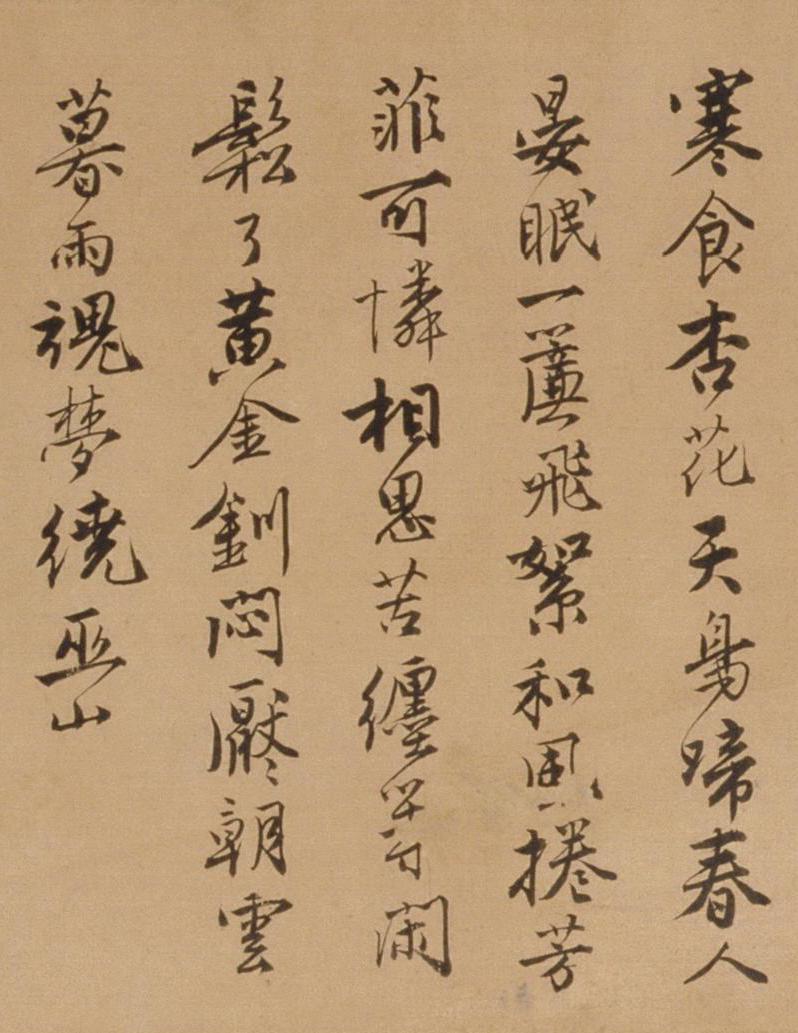 寒食杏花天鳥啼春人
晏眠一簾飛絮和風捲芳
菲可憐相思苦纏等閑
鬆了黃金釧悶厭朝雲
暮雨魂夢繞巫山